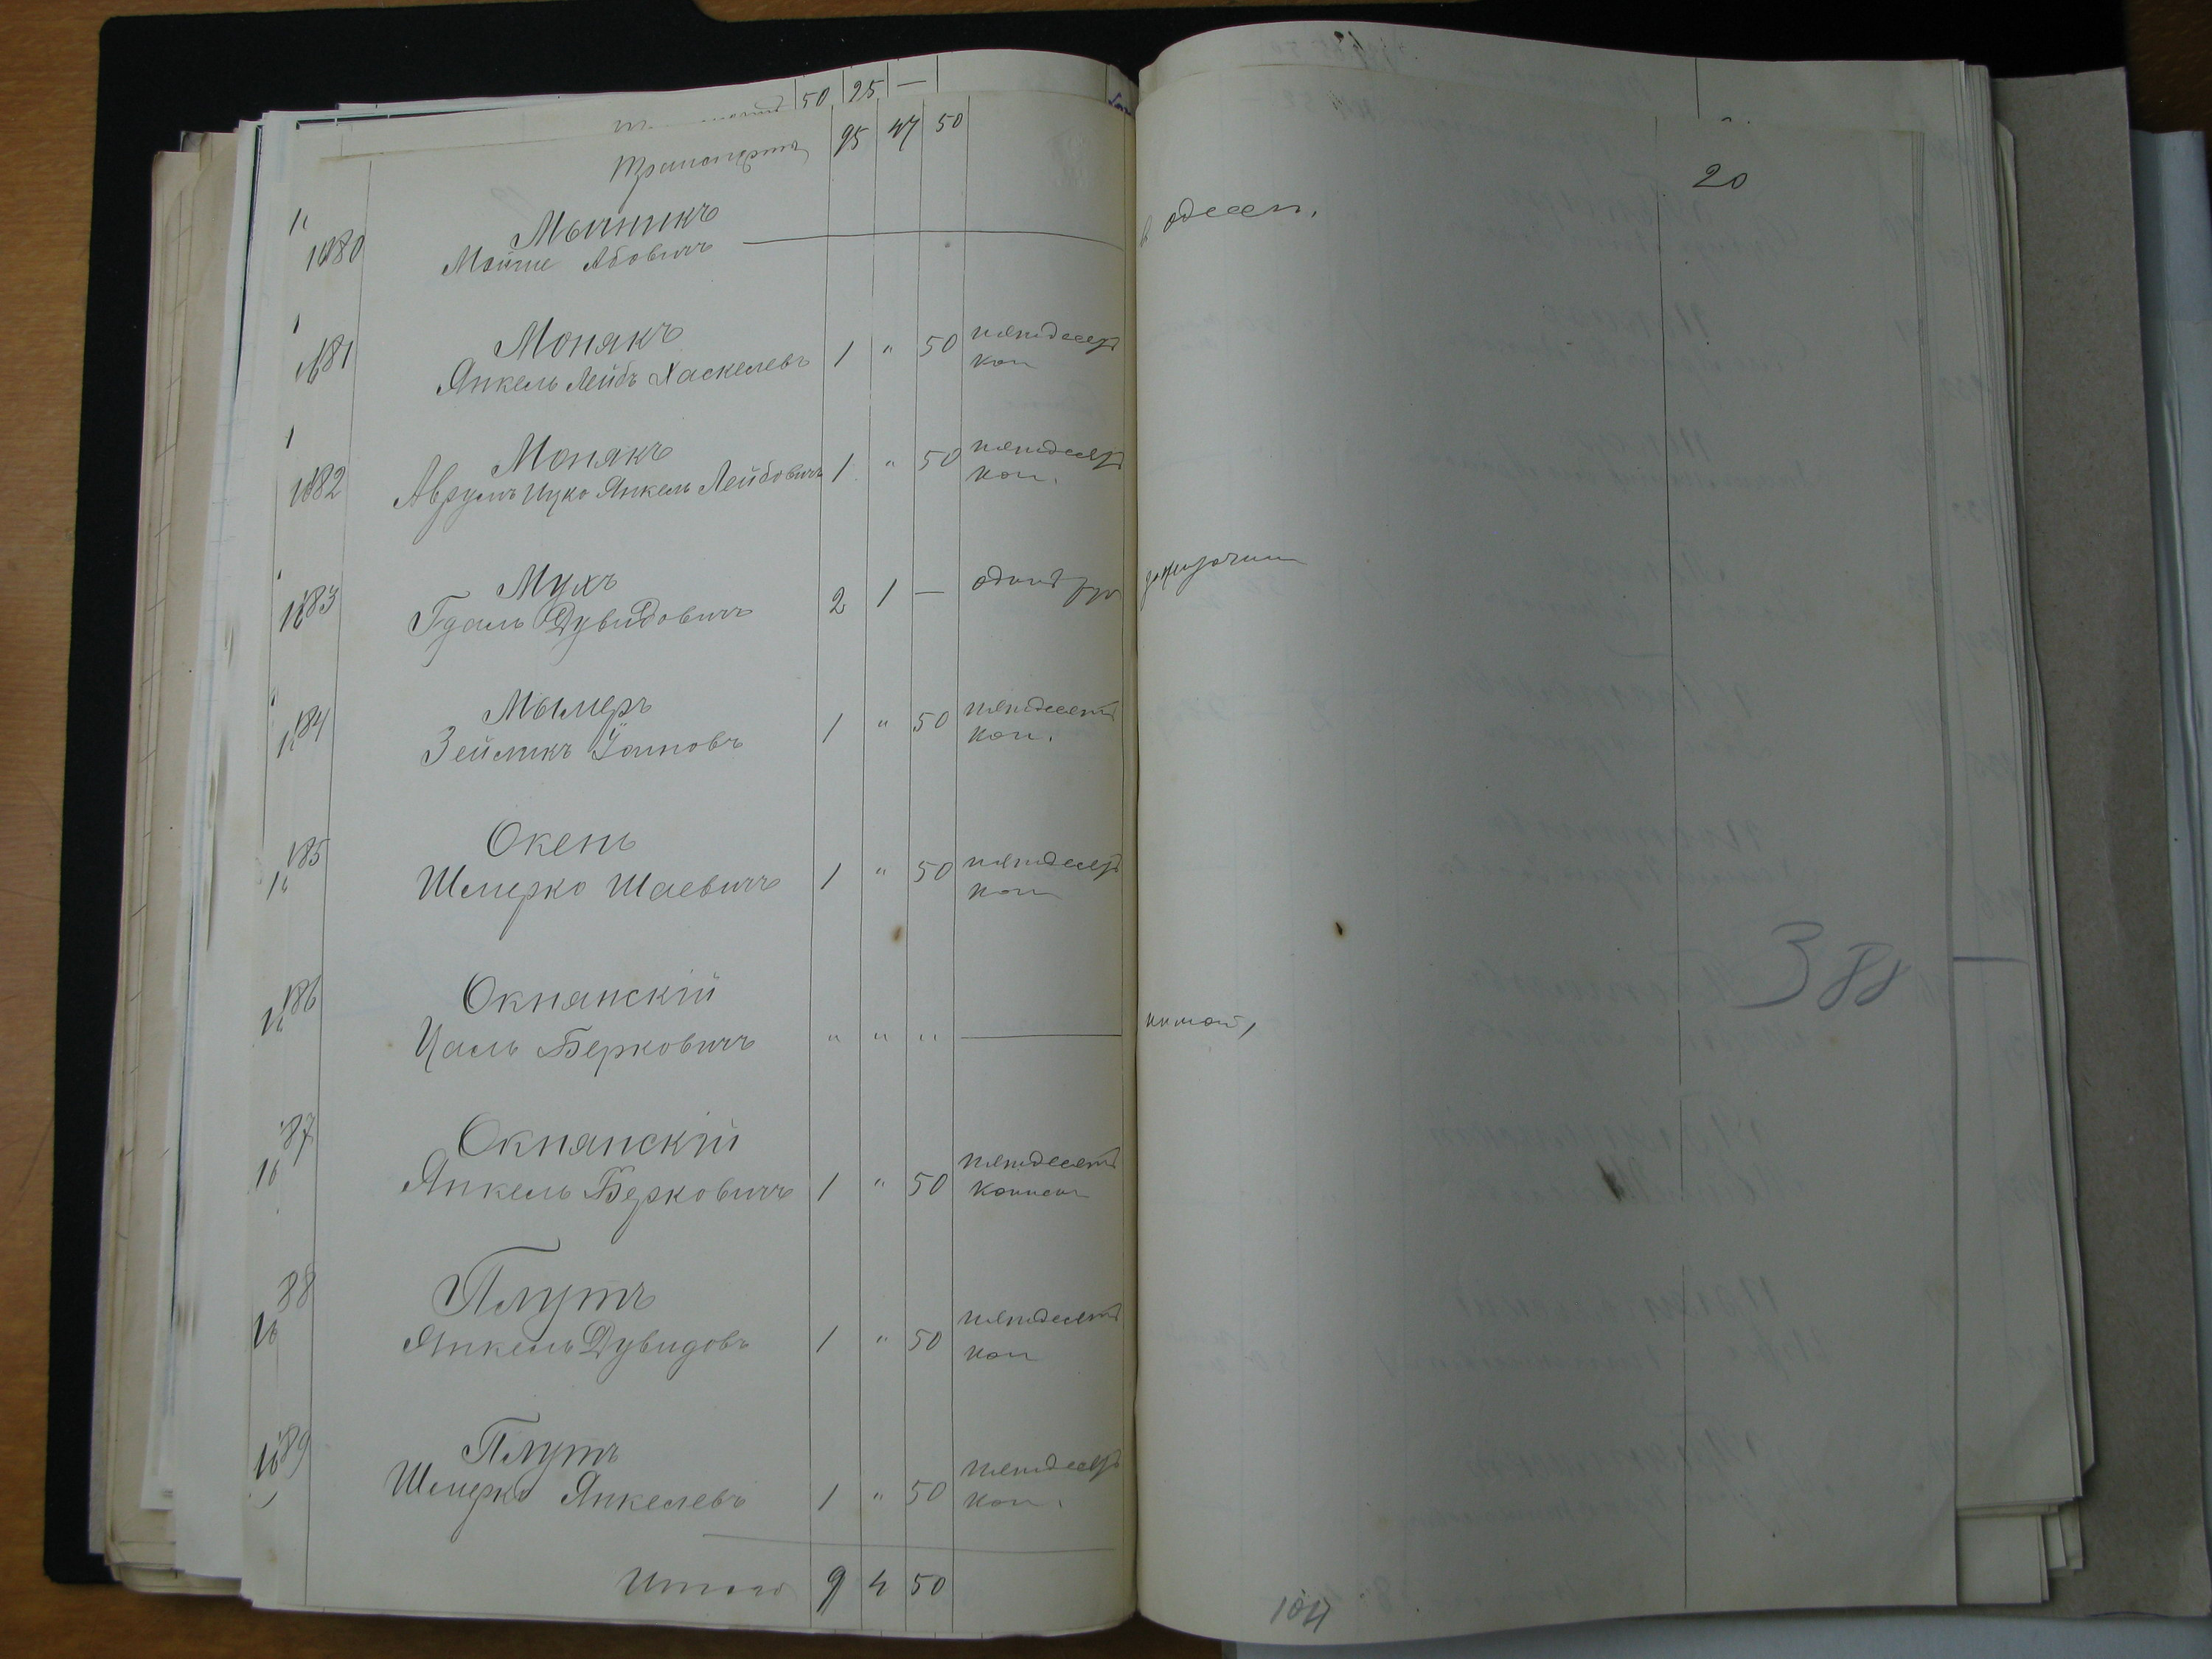 50 25 —
95 47 50
20
180 Мычникъ
Мойше Абовичъ
в одессе.
181 Монякъ
Янкель Лейбъ Хаскелевъ 1 " 50 пятдесят
коп
182 Монякъ
Аврумъ Ицко Янкель Лейбовичъ 1 " 50 пятдесят
коп.
183 Мухъ
Гдаль Дувидовичъ 2 1 — одинъ руб
184 Мылеръ
Зейликъ 1 " 50 пятдесят
коп.
185 Окень
Шмерко Шаевичъ 1 " 50 пятдесят
коп
186 Окнянскій
Цаль Берковичъ " " " —
388
187 Окнянскій
Янкель Берковичъ 1 " 50 пятдесят
копеек
88 Плутъ
Янкель Дувидовъ 1 " 50 пятдесят
коп
189 Плутъ
Шмерко Янкелевъ 1 " 50 пятдесят
коп.
Итого 9 4 50
104